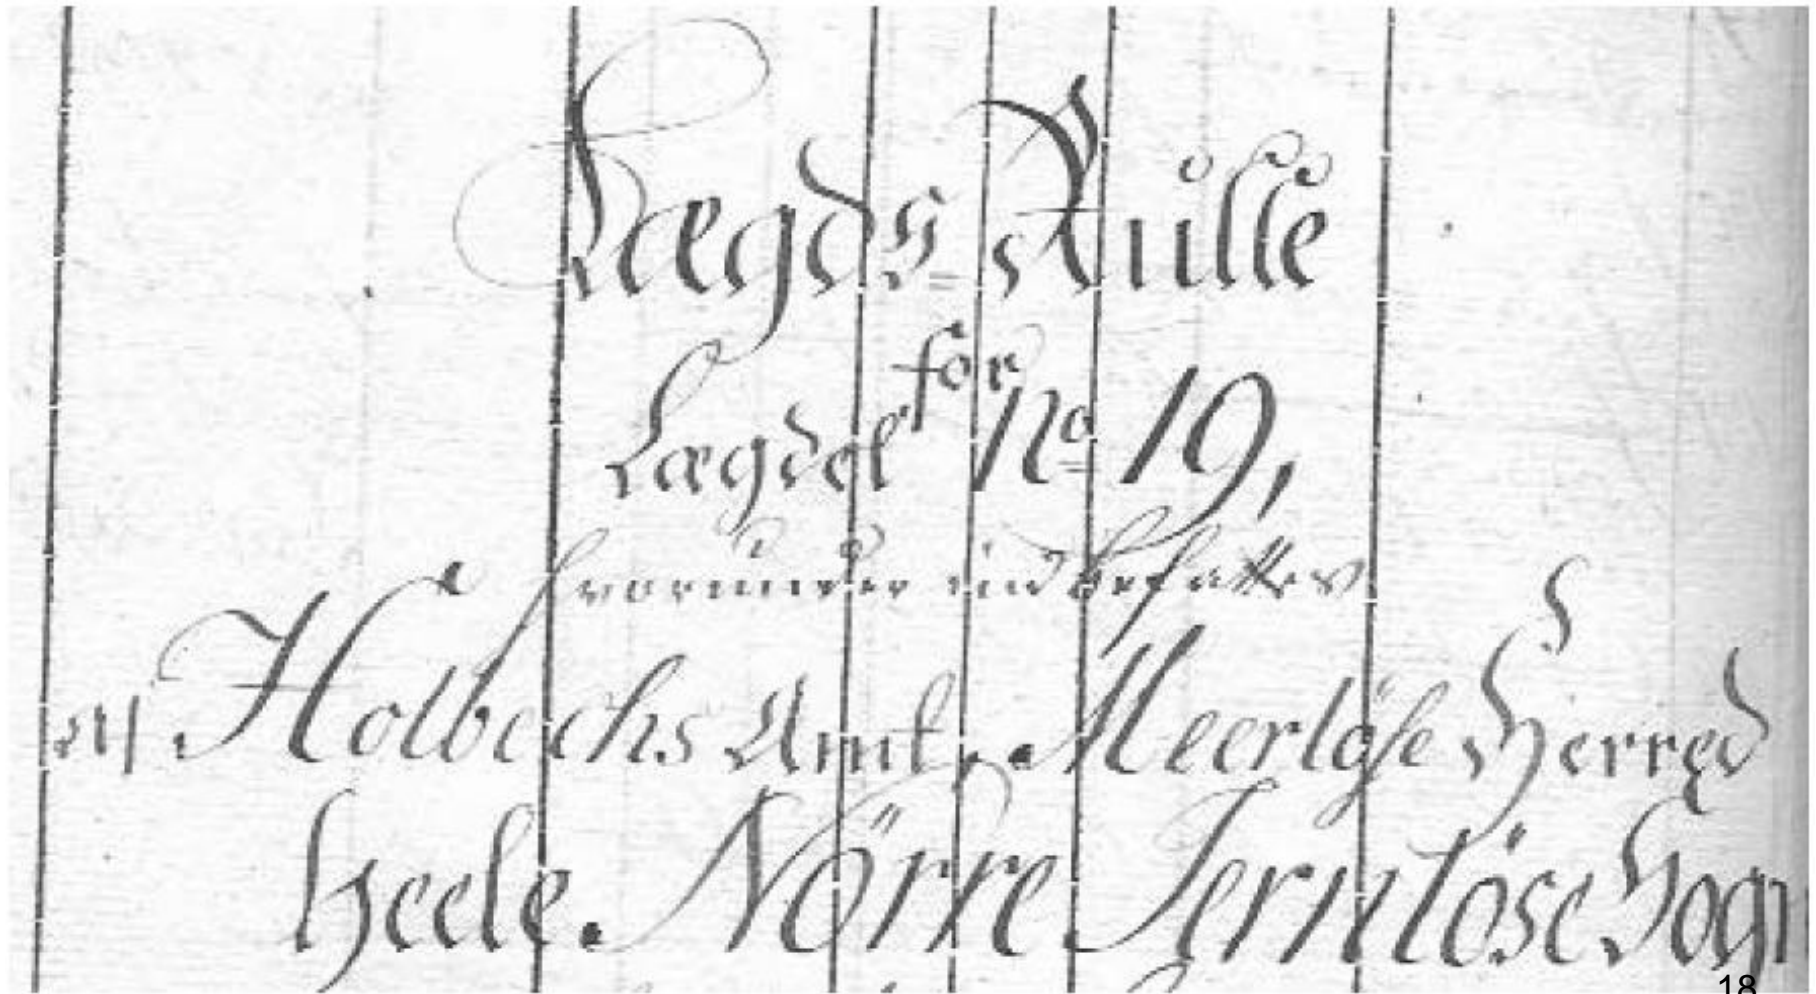 Lægds-Rulle
for
Lægdet No 19,
hvorunder indbefattes
af Holbechs Amt, Meerløse Herred
heele Nörre Jernlöse Sogn
18